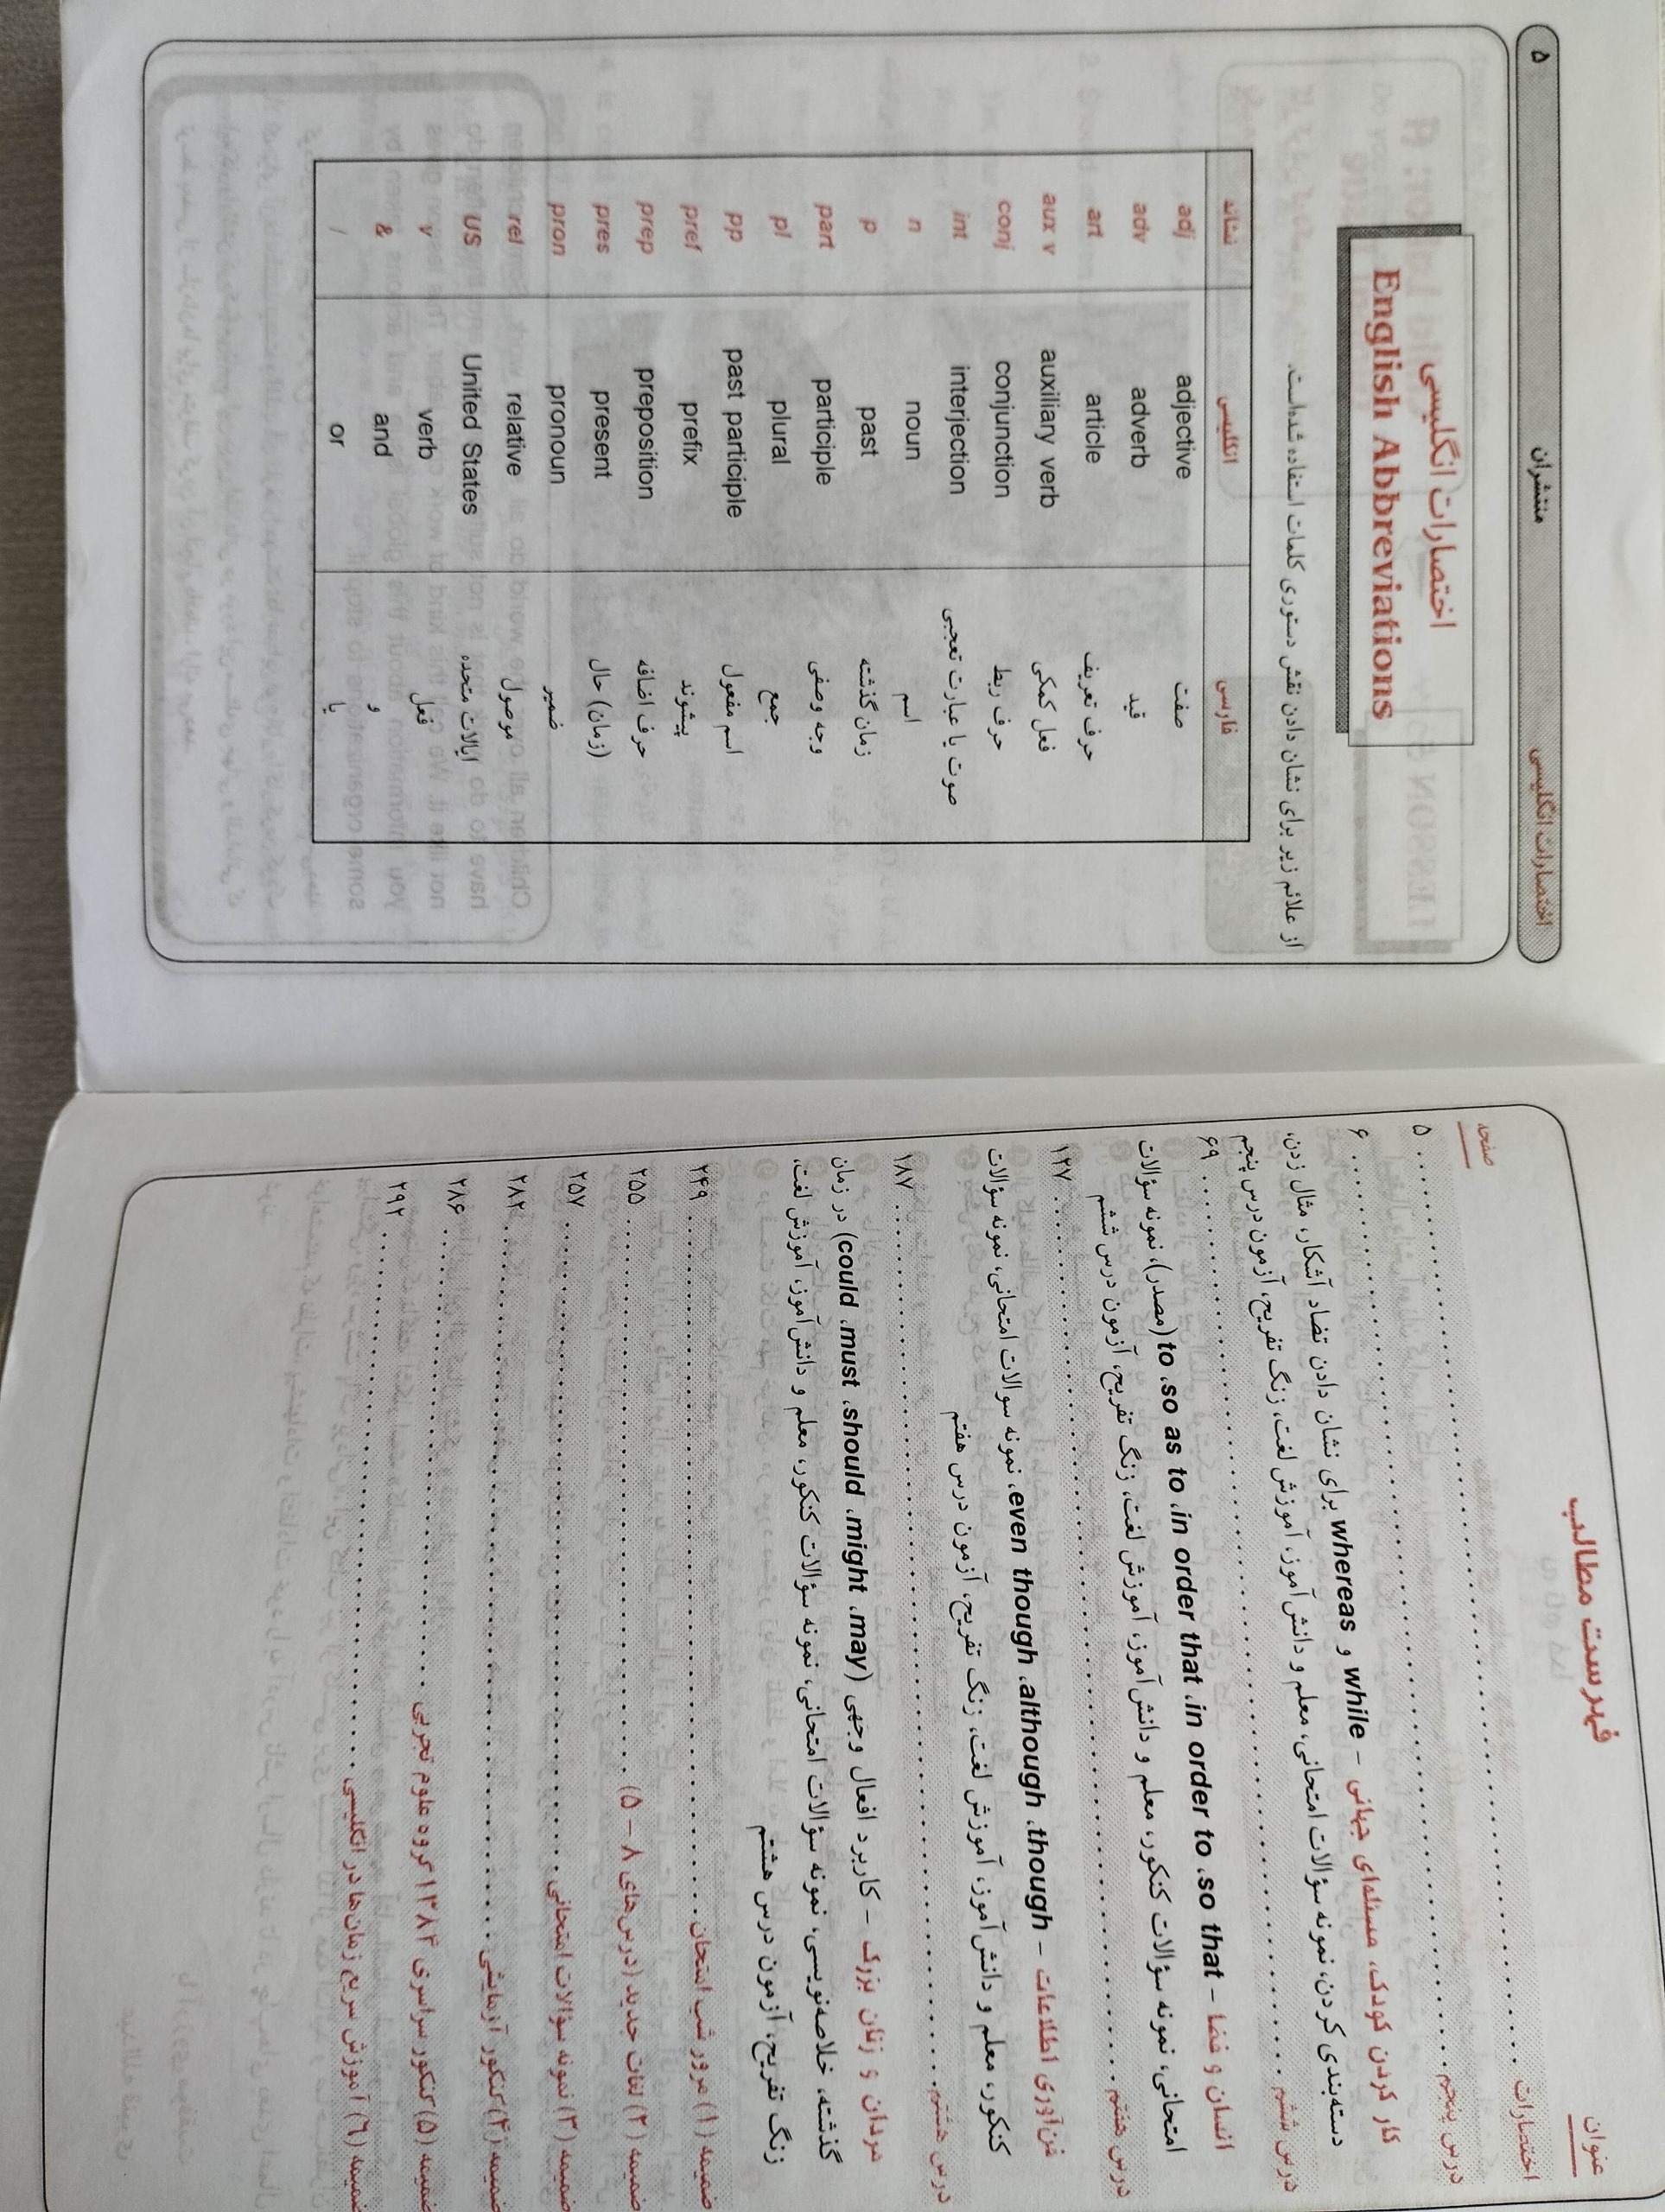 ۵ منتشران اختصارات انگلیسی
اختصارات انگلیسی
English Abbreviations
از علائم زیر برای نشان دادن نقش دستوری کلمات استفاده شده‌است.
نشانه انگلیسی فارسی
adj adjective صفت
adv adverb قید
art article حرف تعریف
aux v auxiliary verb فعل کمکی
conj conjunction حرف ربط
int interjection صوت یا عبارت تعجبی
n noun اسم
p past زمان گذشته
part participle وجه وصفی
pl plural جمع
pp past participle اسم مفعول
pref prefix پیشوند
prep preposition حرف اضافه
pres present (زمان) حال
pron pronoun ضمیر
rel relative موصول
US United States ایالات متحده
v verb فعل
& and و
/ or یا
فهرست مطالب
عنوان صفحه
اختصارات ۵
درس پنجم ۶
کار کردن کودک، مسئله‌ای جهانی – while و whereas برای نشان دادن تضاد آشکار، مثال زدن،
دسته‌بندی کردن، نمونه سؤالات امتحانی، معلم و دانش‌آموز، آموزش لغت، زنگ تفریح، آزمون درس پنجم
درس ششم ۶۹
انسان و فضا – so that، in order to، in order that، so as to، to (مصدر)، نمونه سؤالات
امتحانی، نمونه سؤالات کنکور، معلم و دانش‌آموز، آموزش لغت، زنگ تفریح، آزمون درس ششم
درس هفتم ۱۲۷
فن‌آوری اطلاعات – though، although، even though، نمونه سوالات امتحانی، نمونه سؤالات
کنکور، معلم و دانش‌آموز، آموزش لغت، زنگ تفریح، آزمون درس هفتم
درس هشتم ۱۸۷
مردان و زنان بزرگ – کاربرد افعال وجهی (may، might، should، must، could) در زمان
گذشته، خلاصه‌نویسی، نمونه سؤالات امتحانی، نمونه سؤالات کنکور، معلم و دانش‌آموز، آموزش لغت،
زنگ تفریح، آزمون درس هشتم
ضمیمه (۱) مرور شب امتحان ۲۴۹
ضمیمه (۲) لغات جدید (درس‌های ۸ – ۵) ۲۵۵
ضمیمه (۳) نمونه سؤالات امتحانی ۲۵۷
ضمیمه (۴) کنکور آزمایشی ۲۸۲
ضمیمه (۵) کنکور سراسری ۱۳۸۴ گروه علوم تجربی ۲۸۶
ضمیمه (۶) آموزش سریع زمان‌ها در انگلیسی ۲۹۲